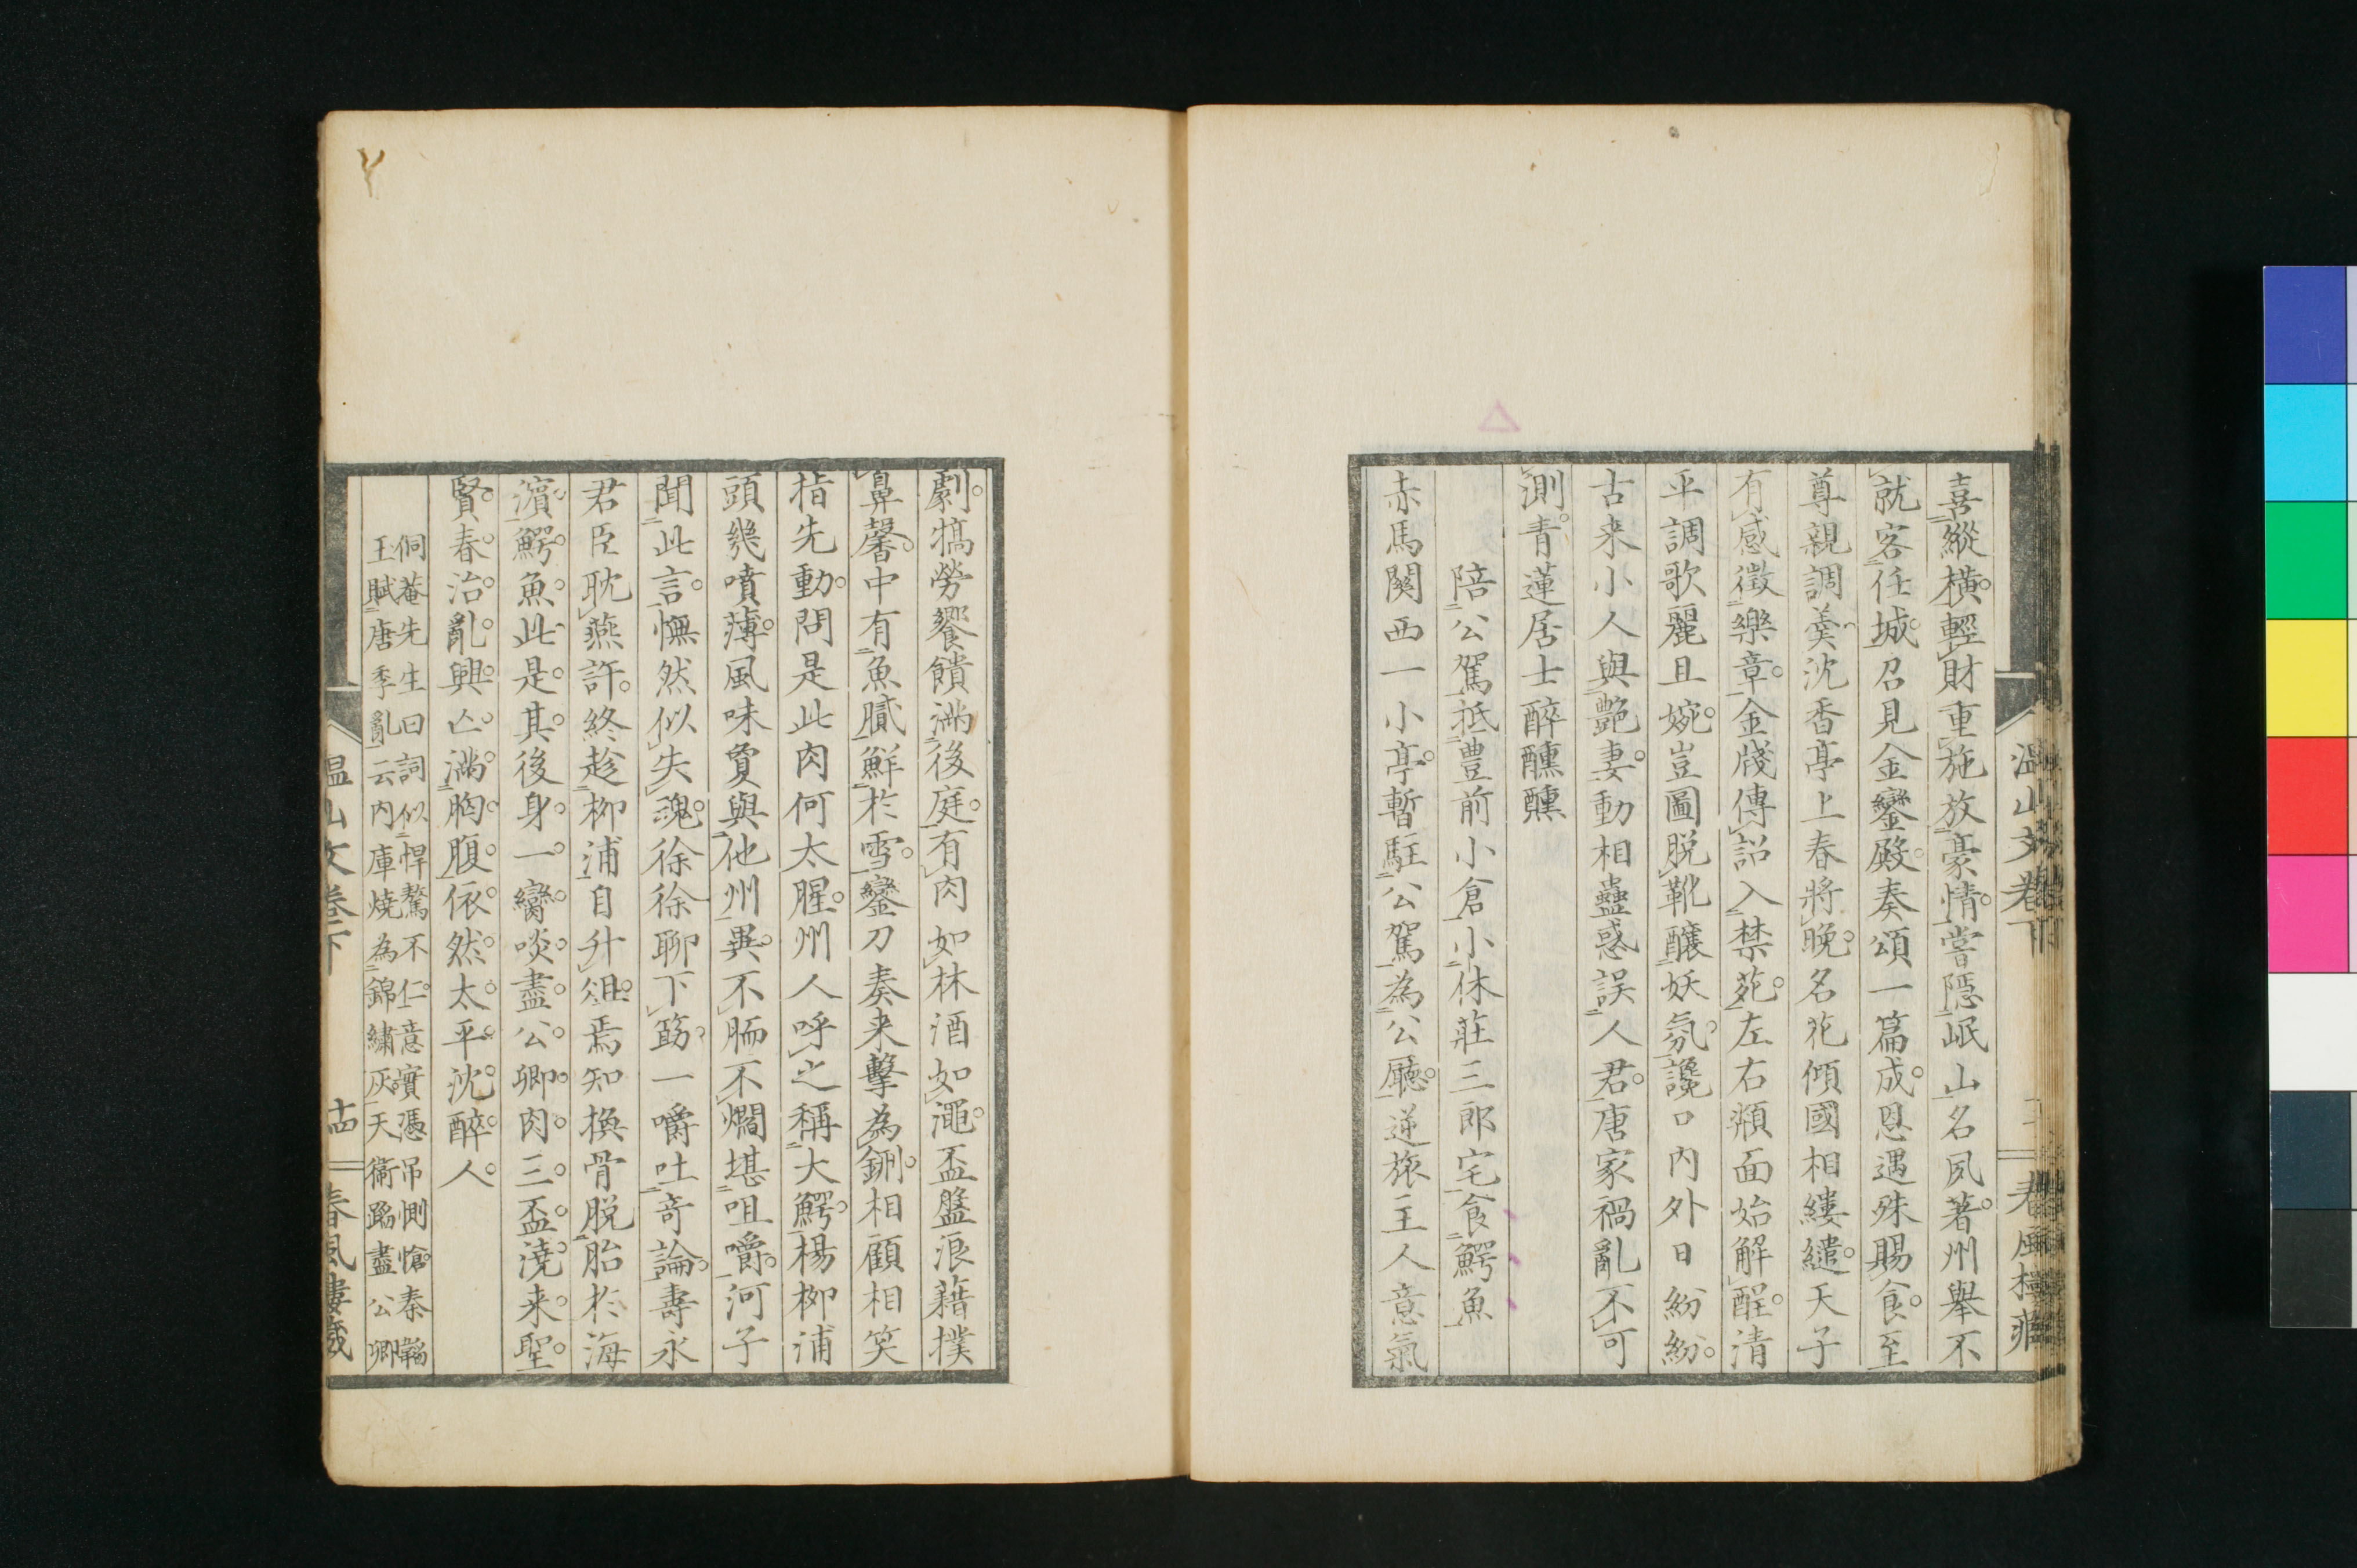 喜縱橫輕財重施放豪情嘗隱岷山名夙著州舉不
就客任城召見金鑾殿奏頌一篇成恩遇殊賜食至
尊親調羹沈香亭上春將晚名花傾國相繾綣天子
有感徵樂章金牋傳詔入禁苑左右頮面始解酲清
平調歌麗且婉豈圖脱靴釀妖氛讒口内外日紛紛
古来小人與艶妻動相蠱惑誤人君唐家禍亂不可
測青蓮居士醉醺醺
陪公駕抵豊前小倉小休莊三郎宅食鰐魚
赤馬關西一小亭暫駐公駕為公廳逆旅主人意氣
劇犒勞饗饋滿後庭有肉如林酒如澠盃盤浪藉撲
鼻馨中有魚膩鮮於雪鑾刀奏来擊為鉶相顧相笑
指先動問是此肉何太腥州人呼之稱大鰐楊柳浦
頭幾噴薄風味敻與他州異不胹不爓堪咀嚼河子
聞此言憮然似失魂徐徐聊下筯一嚼吐奇論壽永
君臣耽燕許終趁柳浦自升俎焉知換骨脱胎於海
濵鰐魚此是其後身一臠啖盡公卿肉三盃澆来聖
賢春治亂興亡滿胸腹依然太平沈醉人
侗菴先生曰詞似悍驁不仁意實憑吊惻愴秦韜
玉賦唐季亂云内庫燒為錦繡灰天衢踏盡公卿
温山文卷下
十四
春風樓藏